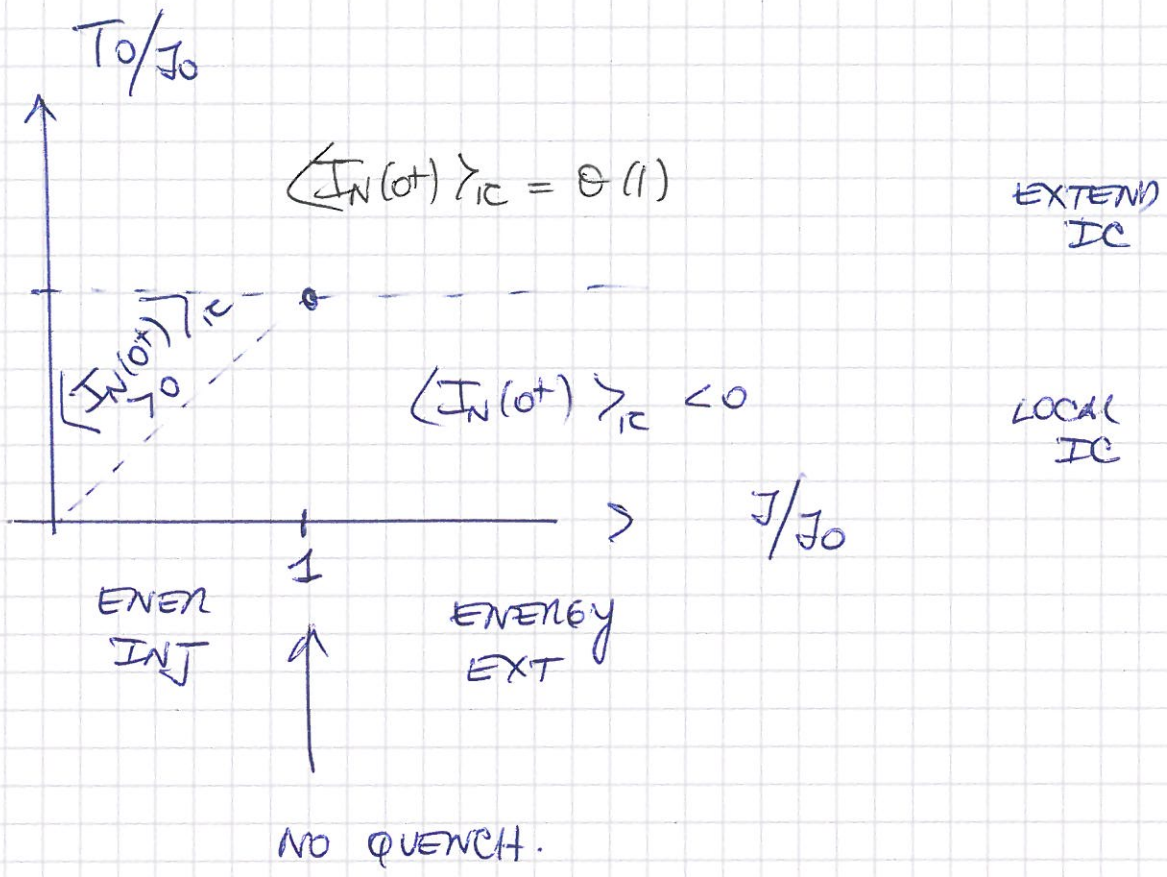 T0/J0
⟨I_N(0+)⟩_IC = θ(1)
EXTEND
IC
⟨I_N(0+)⟩_IC
>0
⟨I_N(0+)⟩_IC < 0
LOCAL
IC
J/J0
1
ENER
INJ
ENERGY
EXT
NO QUENCH.